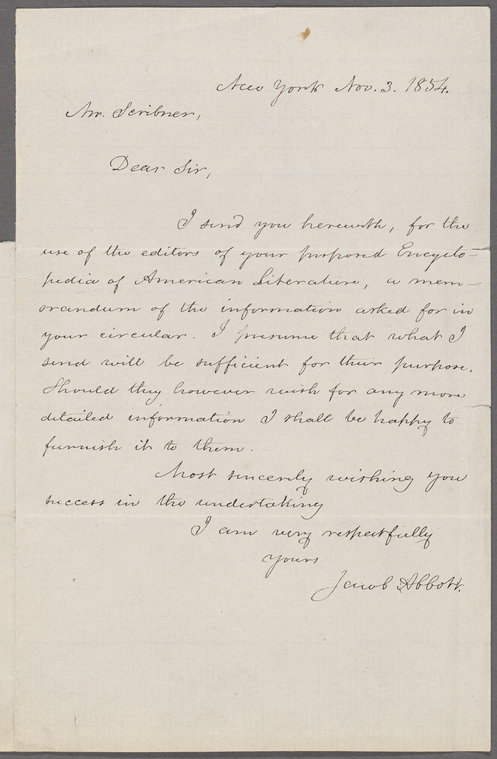 New York Nov. 3. 1854.
Mr. Scribner,
Dear Sir,
I send you herewith, for the
use of the editors of your proposed Encyclo-
pedia of American Literature, a mem-
orandum of the information asked for in
your circular. I presume that what I
send will be sufficient for their purpose.
Should they however wish for any more
detailed information I shall be happy to
furnish it to them.
Most sincerely wishing you
success in the undertaking
I am very respectfully
yours
Jacob Abbott.